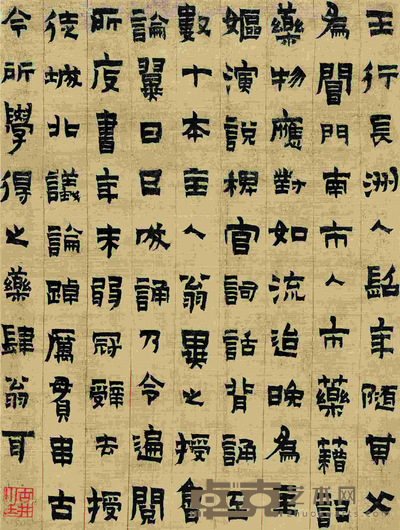 王行長洲人髫年隨其父
為閶門南市人市藥籍記
藥物應對如流迨晚為主
嫗演說稗官詞話背誦至
數十本主人翁異之授魯
論翼日已成誦乃令遍閱
所庋書年未弱冠辭去授
徒城北議論踔厲貫串古
今所學得之藥肆翁耳
卓克艺术网